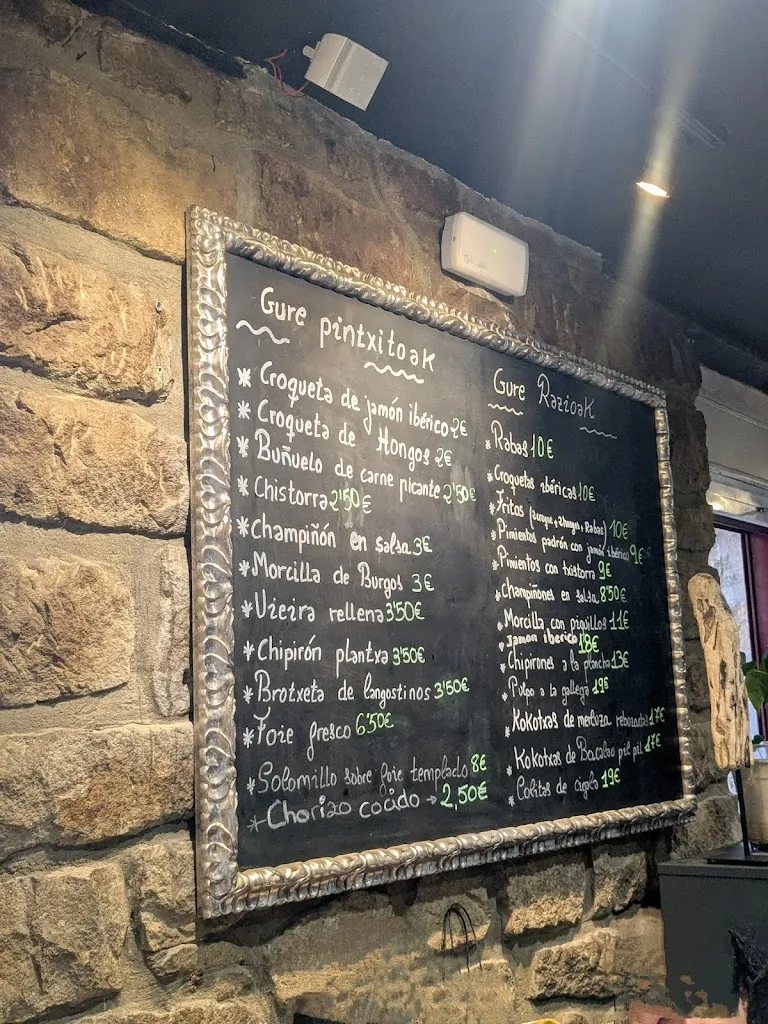 Gure pintxitoak
* Croqueta de jamón ibérico 2€
* Croqueta de Hongos 2€
* Buñuelo de carne picante 2'50€
* Chistorra 2'50€
* Champiñón en salsa 3€
* Morcilla de Burgos 3€
* Vieira rellena 3'50€
* Chipirón plantxa 3'50€
* Brotxeta de langostinos 3'50€
* Foie fresco 6'50€
* Solomillo sobre foie templado 8€
* Chorizo cocido → 2,50€
Gure Razioak
* Rabas 10€
* Croquetas ibéricas 10€
* Fritos Rabas) 10€
* Pimientos padrón con jamón ibérico 9€
* Pimientos con txistorra 9€
* Champiñones en salsa 8'50€
* Morcilla con piquillos 11€
* jamon iberico 18€
* Chipirones a la plancha 13€
* Pulpo a la gallega 19€
* Kokotxas de merluza rebozadas 17€
* Kokotxas de Bacalao pil pil 17€
* Colitas de cigala 19€